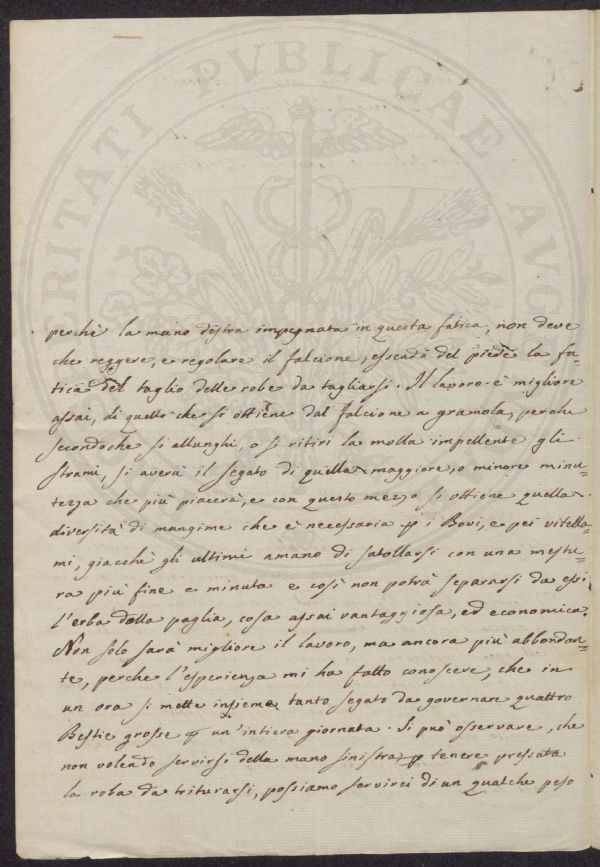 PROSPERITATI PVBLICAE AVG
perchè la mano destra impegnata in questa fatica, non deve
che reggere, e regolare il falcione, essendo del piede la fa=
tica del taglio delle robe da tagliarsi. Il lavoro è migliore
assai, di quello che si ottiene dal falcione a gramola, perche
secondoche si allunghi, o si ritiri la molla impellente gli
strami, si averà il segato di quella maggiore, o minore minu=
tezza che più piacerà, e con questo mezzo si ottiene quella
diversità di mangime che è necessaria p i Bovi, e pei vitella=
mi, giacchè gli ultimi amano di satollarsi con una mestu=
ra più fine e minuta e così non potrà separarsi da essi
l'erba dalla paglia, cosa assai vantaggiosa, ed economica.
Non solo sarà migliore il lavoro, ma ancora più abbondan=
te, perche l'esperienza mi ha fatto conoscere, che in
un ora si mette insieme tanto segato da governare quattro
Bestie grosse p un'intiera giornata. Si può osservare, che
non volendo servirsi della mano sinistra p tenere pressata
la roba da triturarsi, possiamo servirci di un qualche peso